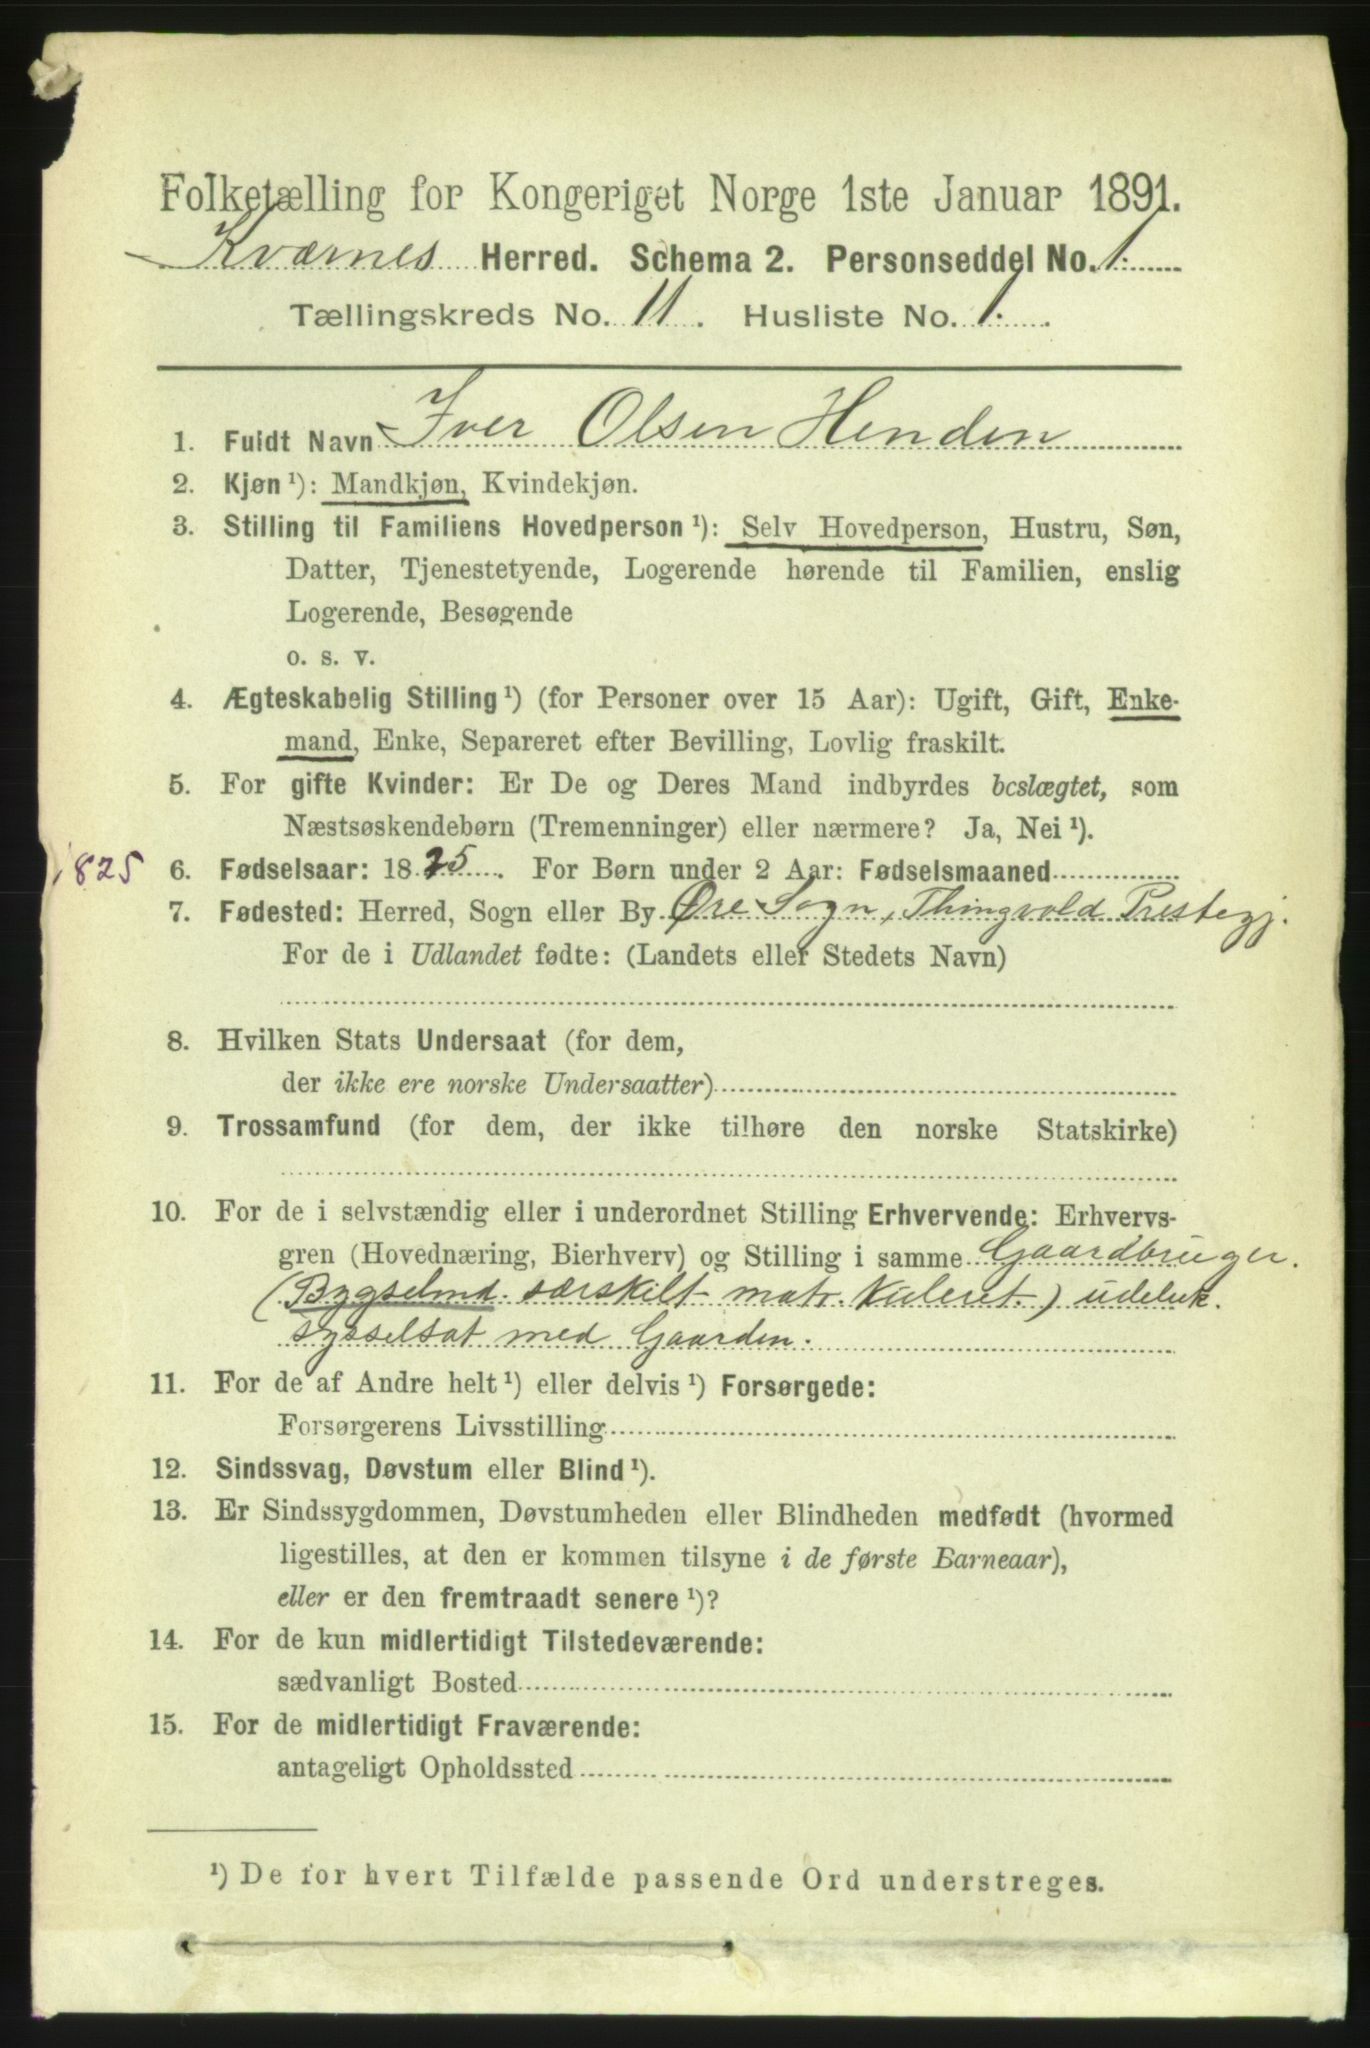 Folketælling for Kongeriget Norge 1ste Januar 1891.
Kværnes Herred. Schema 2. Personseddel No. 1.
Tællingskreds No. 11. Husliste No. 1.
1. Fuldt Navn Iver Olsen Henden
2. Kjøn ¹): Mandkjøn, Kvindekjøn.
3. Stilling til Familiens Hovedperson ¹): Selv Hovedperson, Hustru, Søn,
Datter, Tjenestetyende, Logerende hørende til Familien, enslig
Logerende, Besøgende
o. s. v.
4. Ægteskabelig Stilling ¹) (for Personer over 15 Aar): Ugift, Gift, Enke-
mand, Enke, Separeret efter Bevilling, Lovlig fraskilt.
5. For gifte Kvinder: Er De og Deres Mand indbyrdes beslægtet, som
Næstsøskendebørn (Tremenninger) eller nærmere? Ja, Nei ¹).
1825 6. Fødselsaar: 1825. For Børn under 2 Aar: Fødselsmaaned
7. Fødested: Herred, Sogn eller By Øre Sogn, Thingvold Prestegj.
For de i Udlandet fødte: (Landets eller Stedets Navn)
8. Hvilken Stats Undersaat (for dem,
der ikke ere norske Undersaatter)
9. Trossamfund (for dem, der ikke tilhøre den norske Statskirke)
10. For de i selvstændig eller i underordnet Stilling Erhvervende: Erhvervs-
gren (Hovednæring, Bierhverv) og Stilling i samme Gaardbruger.
(Bygselmd. særskilt matr. Kuleret.) udeluk.
sysselsat med Gaarden.
11. For de af Andre helt ¹) eller delvis ¹) Forsørgede:
Forsørgerens Livsstilling
12. Sindssvag, Døvstum eller Blind ¹).
13. Er Sindssygdommen, Døvstumheden eller Blindheden medfødt (hvormed
ligestilles, at den er kommen tilsyne i de første Barneaar),
eller er den fremtraadt senere ¹)?
14. For de kun midlertidigt Tilstedeværende:
sædvanligt Bosted
15. For de midlertidigt Fraværende:
antageligt Opholdssted
¹) De for hvert Tilfælde passende Ord understreges.